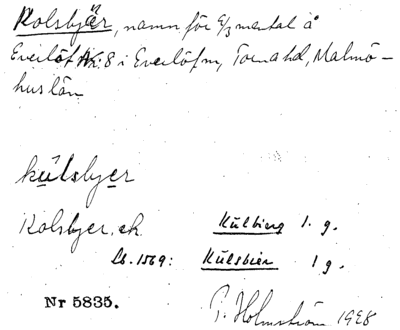 Kolsbjär, namn för 2/3 mental å
Everlöf Nr: 8 i Everlöf sn, Torna hd, Malmö-
hus län
kúlsbyer
Kolsbyer, ek. Kulbierg 1. g.
Lb. 1569: Kulsbier 1 g.
Nr 5835.
P. Holmström 1928